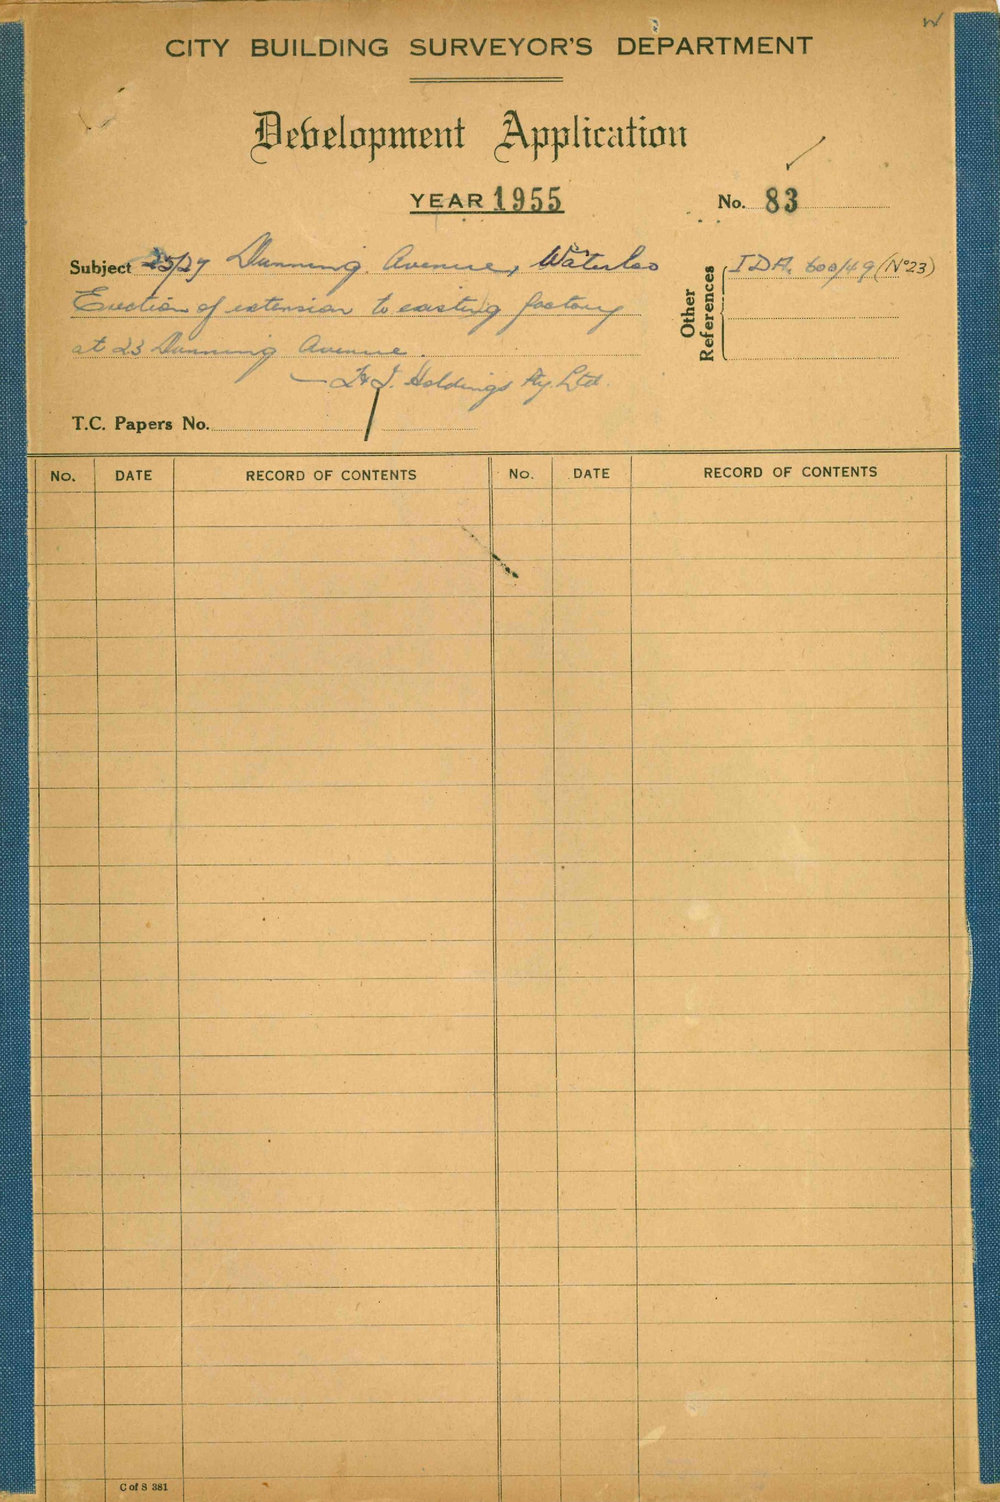 W
CITY BUILDING SURVEYOR'S DEPARTMENT
Development Application
YEAR 1955
No. 83
Subject 25/29 Dunning Avenue, Waterloo
Erection of extension to existing factory
at 23 Dunning Avenue.
Holdings Pty. Ltd.
Other References
I.D.A. 600/49 (No 23)
T.C. Papers No.
No. DATE RECORD OF CONTENTS No. DATE RECORD OF CONTENTS
C of S 381